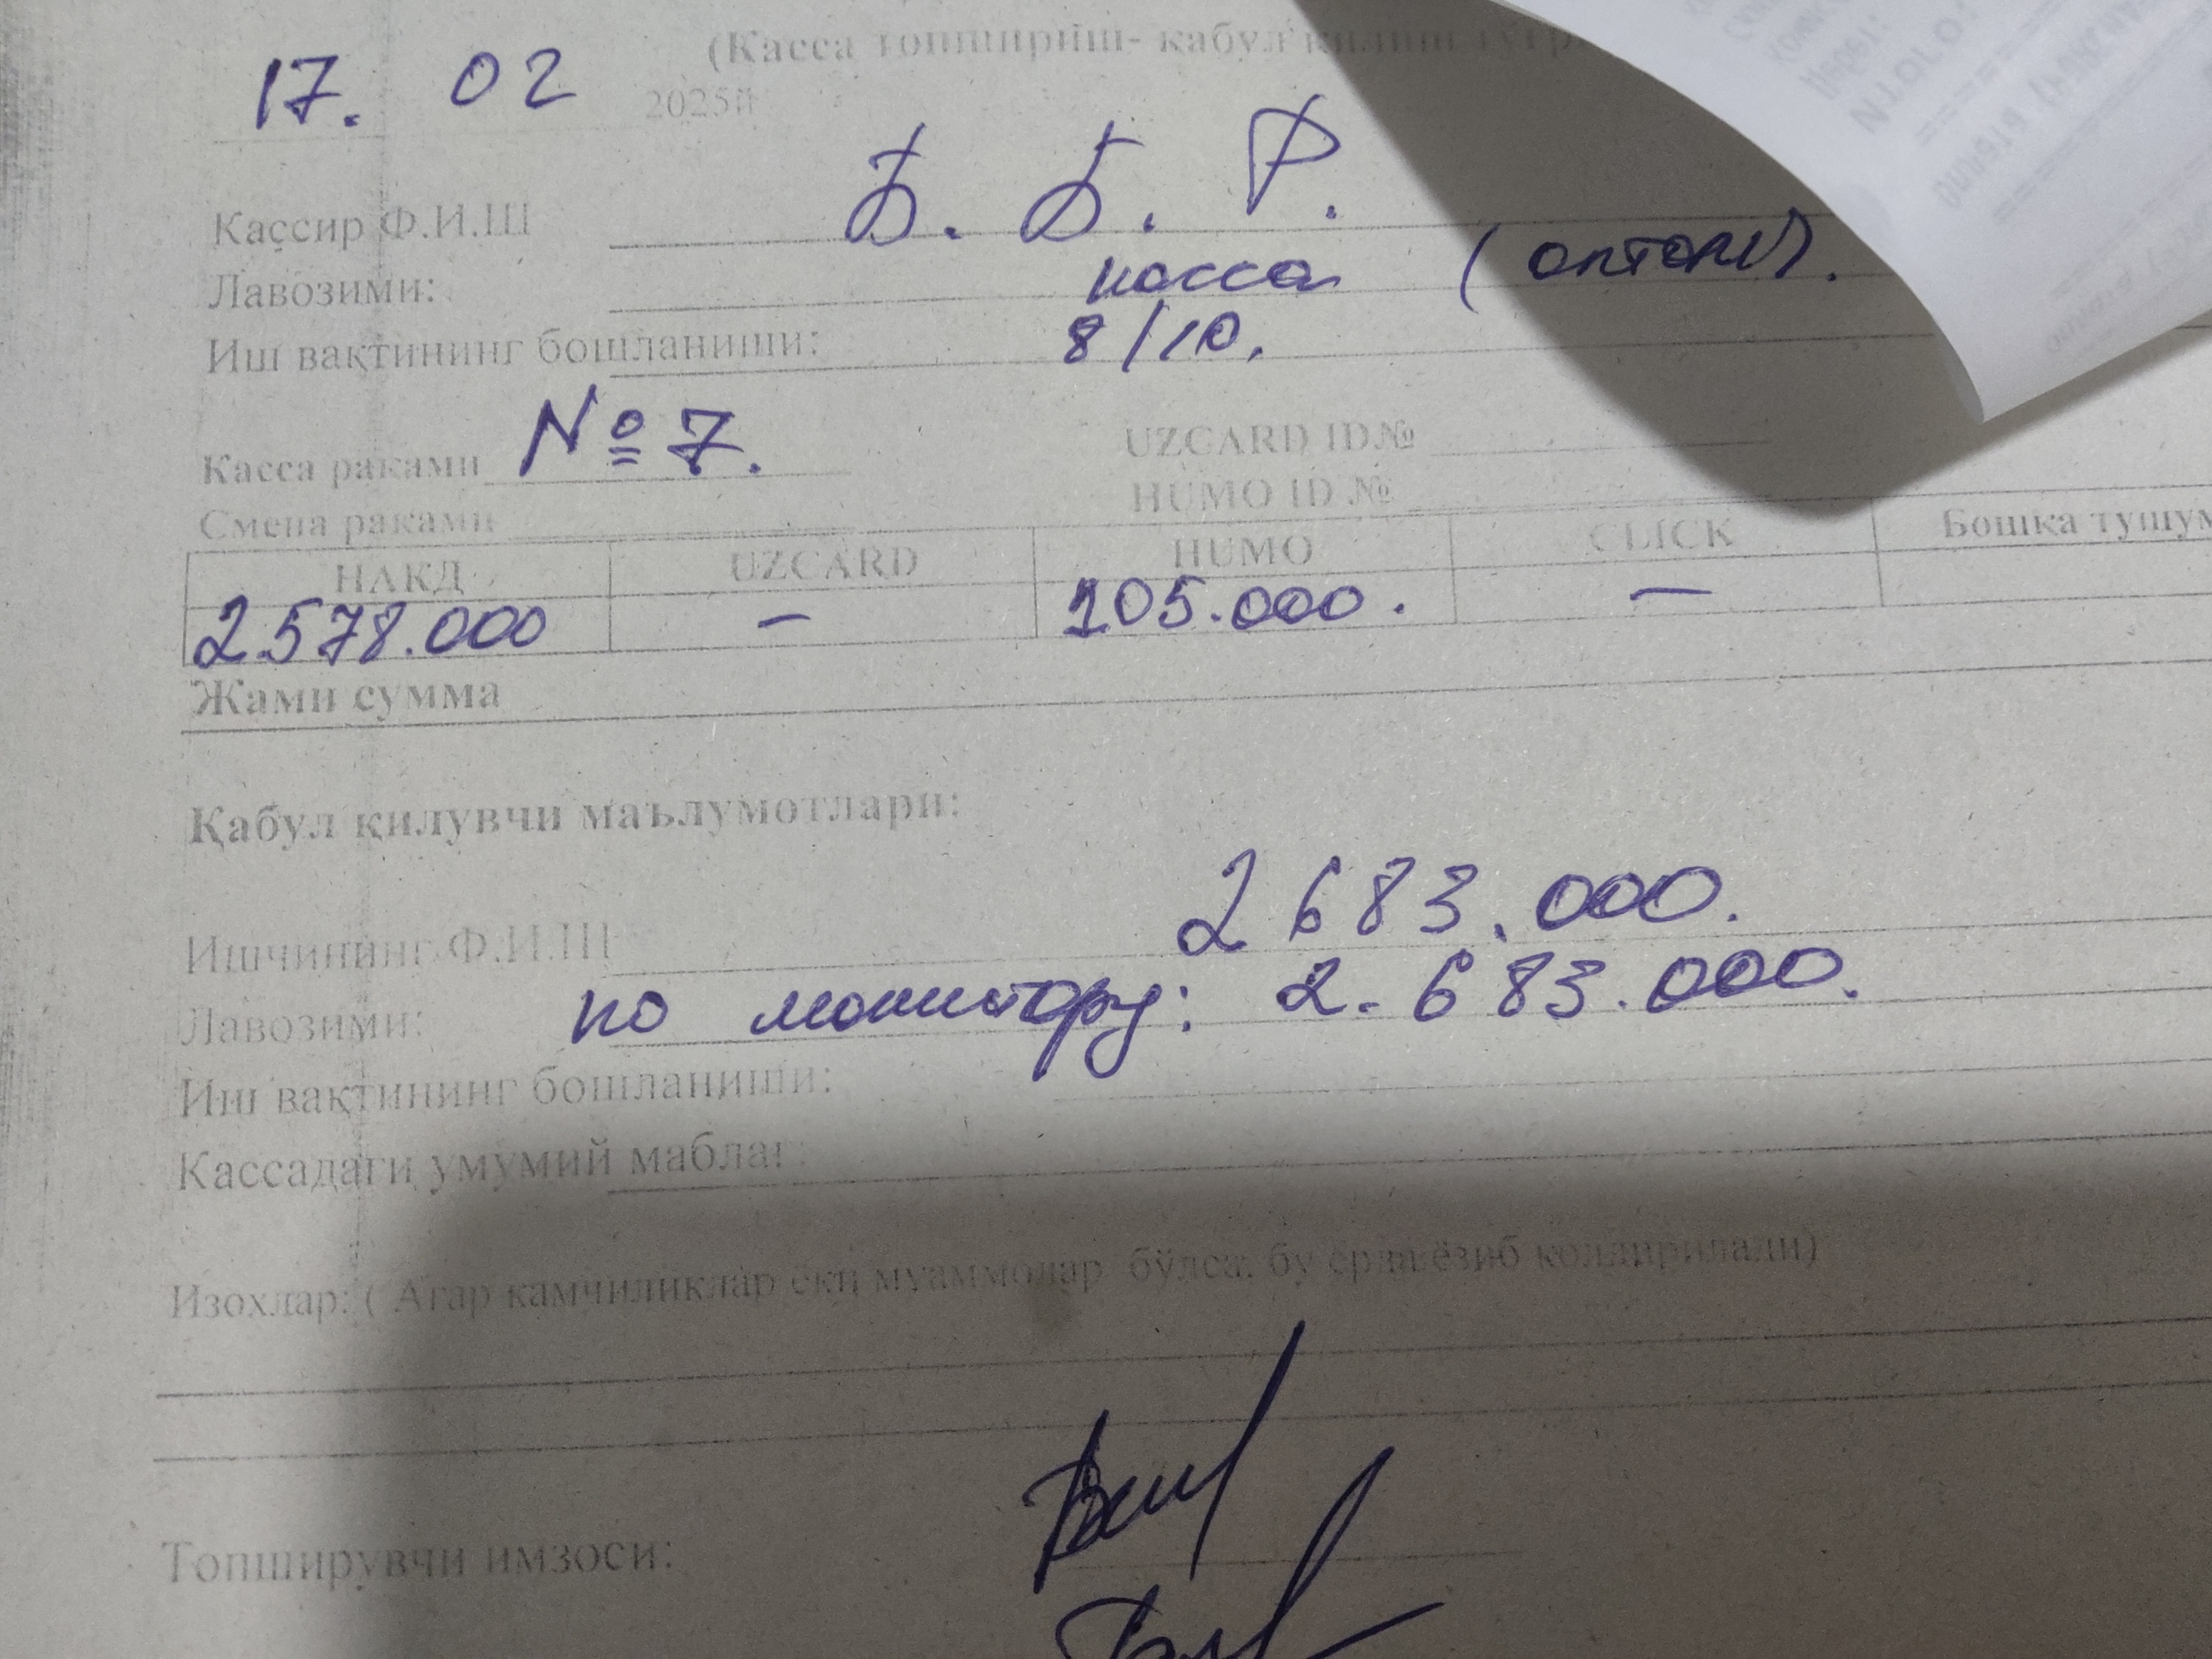 (Касса топшириш- қабул қилиш тўғр
17. 02 2025й
Кассир Ф.И.Ш Б. Б. Р.
Лавозими: касса (оптом).
Иш вақтининг бошланиши: 8/10.
Касса раками №7. UZCARD ID№
Смена раками HUMO ID №
НАКД UZCARD HUMO CLICK Бошка тушум
2.578.000 – 105.000. –
Жами сумма
Қабул қилувчи маълумотлари:
2 683.000.
Ишчининг Ф.И.Ш
Лавозими: по монитору: 2.683.000.
Иш вақтининг бошланиши:
Кассадаги умумий маблағ:
Изохлар: ( Агар камчиликлар ёки муаммолар бўлса, бу ерга ёзиб колдирилади)
Топширувчи имзоси:
ИТОГО: